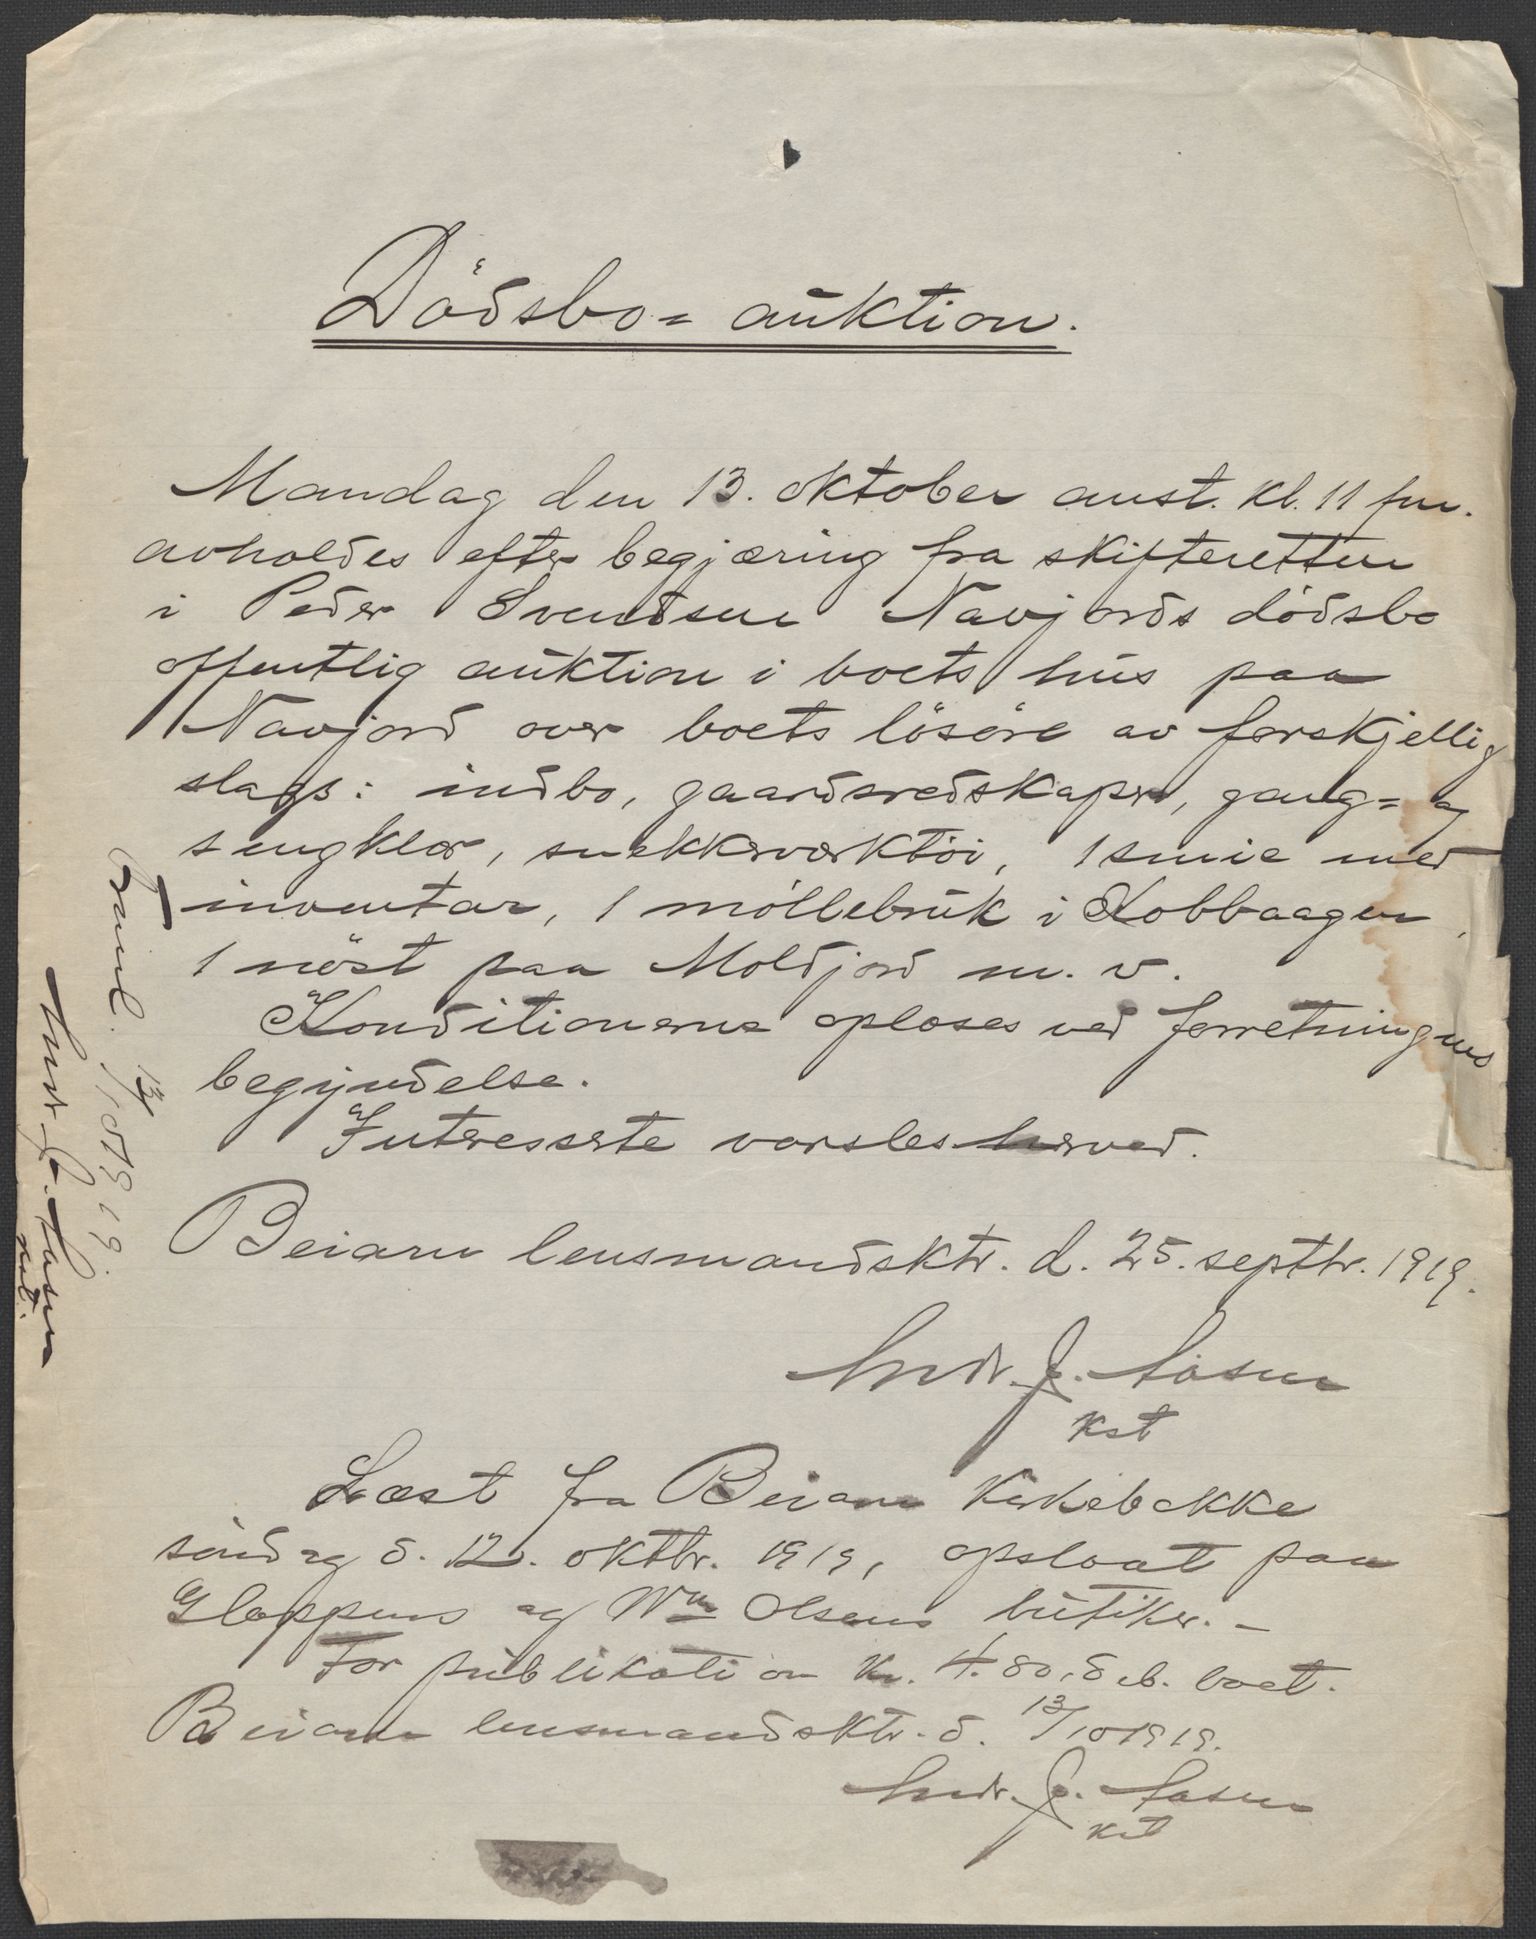 Dödsbo= auktion.
Mandag den 13. oktober anst. kl. 11 fm.
avholdes efter begjæring fra skifteretten
i Peder Svendsen Navjords dödsbo
offentlig auktion i boets hus paa
Navjord over boets lösöre av forskjellig
slags: indbo, gaardsredskaper, gang= og
sengklær, snekkerværktöi, 1 smie med
inventar, 1 möllebruk i Kobbaagen,
1 nöst paa Moldjord m. v.
Konditionerne oplæses ved forretningens
begyndelse.
Interesserte varsles herved.
Beiarn lensmandsktr. d. 25. septbr. 1919.
Andr. J. Aasen
kst
Læst fra Beiarn kirkebakke
söndag d. 12. oktbr. 1919, opslaat paa
Gloppens og Wm Olsens butiker. –
For publikation kr. 4.80, deb. boet.
Beiarn lensmandsktr. d. 13/10 1919.
Andr. J. Aasen
kst
13/10 1919.
Andr. J. Aasen
kst.